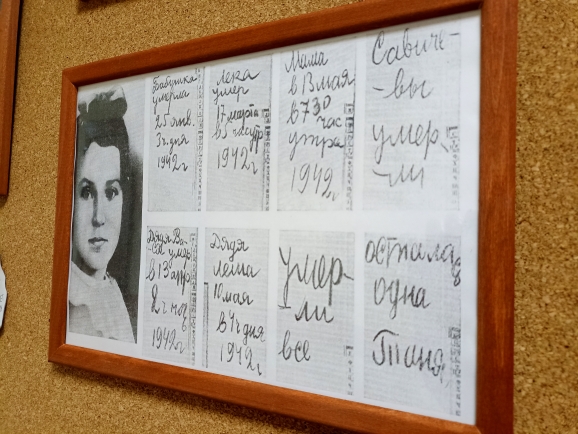 Бабушка
умерла
25 янв.
3ч. дня
1942 г
Лека
умер
17 марта
в 5 час утр
1942 г
Мама
в 13 мая
в 7 30
час
утра
1942 г
Савиче-
-вы
умер
-ли
Дядя Ва-
ся умер
в 13 апр
2 ч ноч
1942 г
Дядя
Леша
10 мая
в 4 ч дня
1942 г
умер-
-ли
все
осталась
одна
Таня